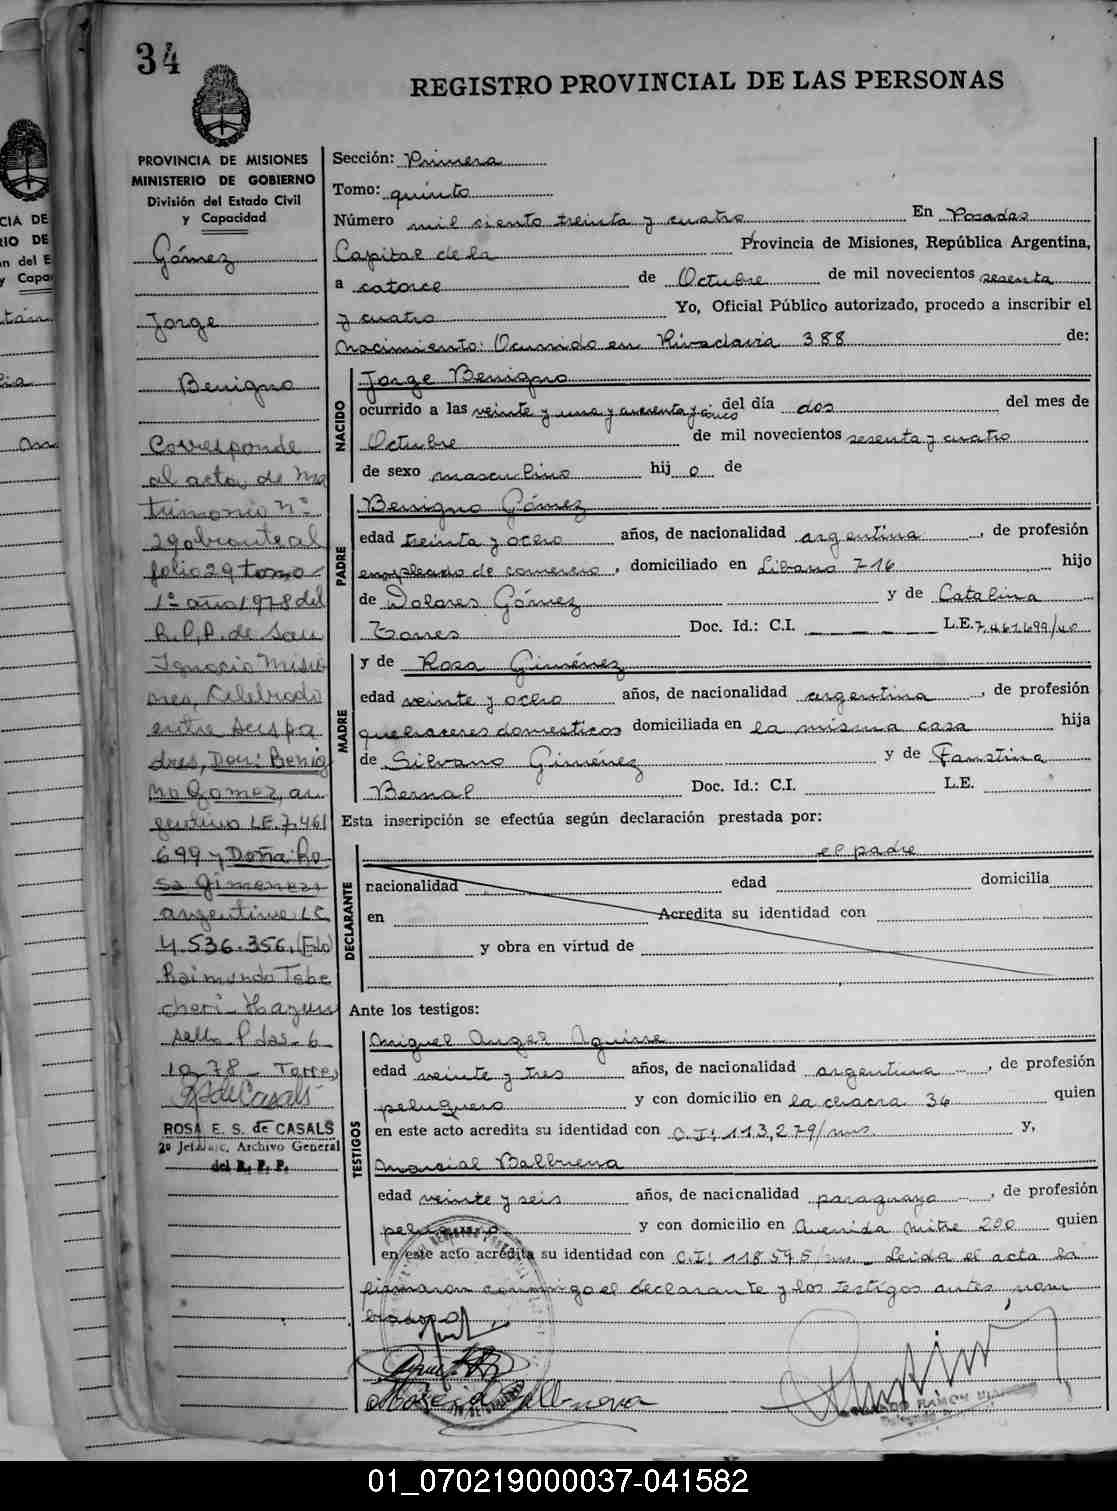 34
REGISTRO PROVINCIAL DE LAS PERSONAS
PROVINCIA DE MISIONES
MINISTERIO DE GOBIERNO
División del Estado Civil
y Capacidad
Gómez
Jorge
Benigno
Corresponde
al acta, de Ma
trimonio nº
29 obrante al
folio 29 tomo
1º año 1978 del
R.P.P. de San
Ignacio Misio
nes, Celebrado
entre sus pa
dres, Don: Benig
no Gomez, ar
gentino L.E. 7.461
699 y Doña: Ro
sa Gimenez,
argentina L.C.
4.536.356. (Fdo)
Raimundo
sello P das. 6
10 78 - Torres
ROSA E. S. de CASALS
Archivo General
del R. P. P.
Sección: Primera
Tomo: quinto
Número mil siento treinta y cuatro En Posadas
Capital de la Provincia de Misiones, República Argentina,
a catorce de Octubre de mil novecientos sesenta
y cuatro Yo, Oficial Público autorizado, procedo a inscribir el
Nacimiento: Ocurrido en Rivadavia 388 de:
NACIDO
Jorge Benigno
ocurrido a las veinte y una y cuarenta y cinco del día dos del mes de
Octubre de mil novecientos sesenta y cuatro
de sexo masculino hij o de
PADRE
Benigno Gómez
edad treinta y ocho años, de nacionalidad argentina, de profesión
empleado de comercio, domiciliado en Libano 716 hijo
de Dolores Gómez y de Catalina
Torres Doc. Id.: C.I. L.E. 7.461.699/40
MADRE
y de Rosa Giménez
edad veinte y ocho años, de nacionalidad argentina, de profesión
quehaceres domesticos domiciliada en la misma casa hija
de Silvano Giménez y de Faustina
Bernal Doc. Id.: C.I. L.E.
Esta inscripción se efectúa según declaración prestada por:
DECLARANTE
el padre
nacionalidad edad domicilia
en Acredita su identidad con
y obra en virtud de
Ante los testigos:
TESTIGOS
Miguel Angel Aguirre
edad veinte y tres años, de nacionalidad argentina, de profesión
peluquero y con domicilio en la chacra 36 quien
en este acto acredita su identidad con C.I: 113,279/ms y,
Marcial Balbuena
edad veinte y seis años, de nacionalidad paraguaya, de profesión
y con domicilio en Avenida Mitre 220 quien
en este acto acredita su identidad con C.I: 118.575/ms Leida el acta la
firmaron conmigo el declarante y los testigos antes nom
brados
01_070219000037-041582